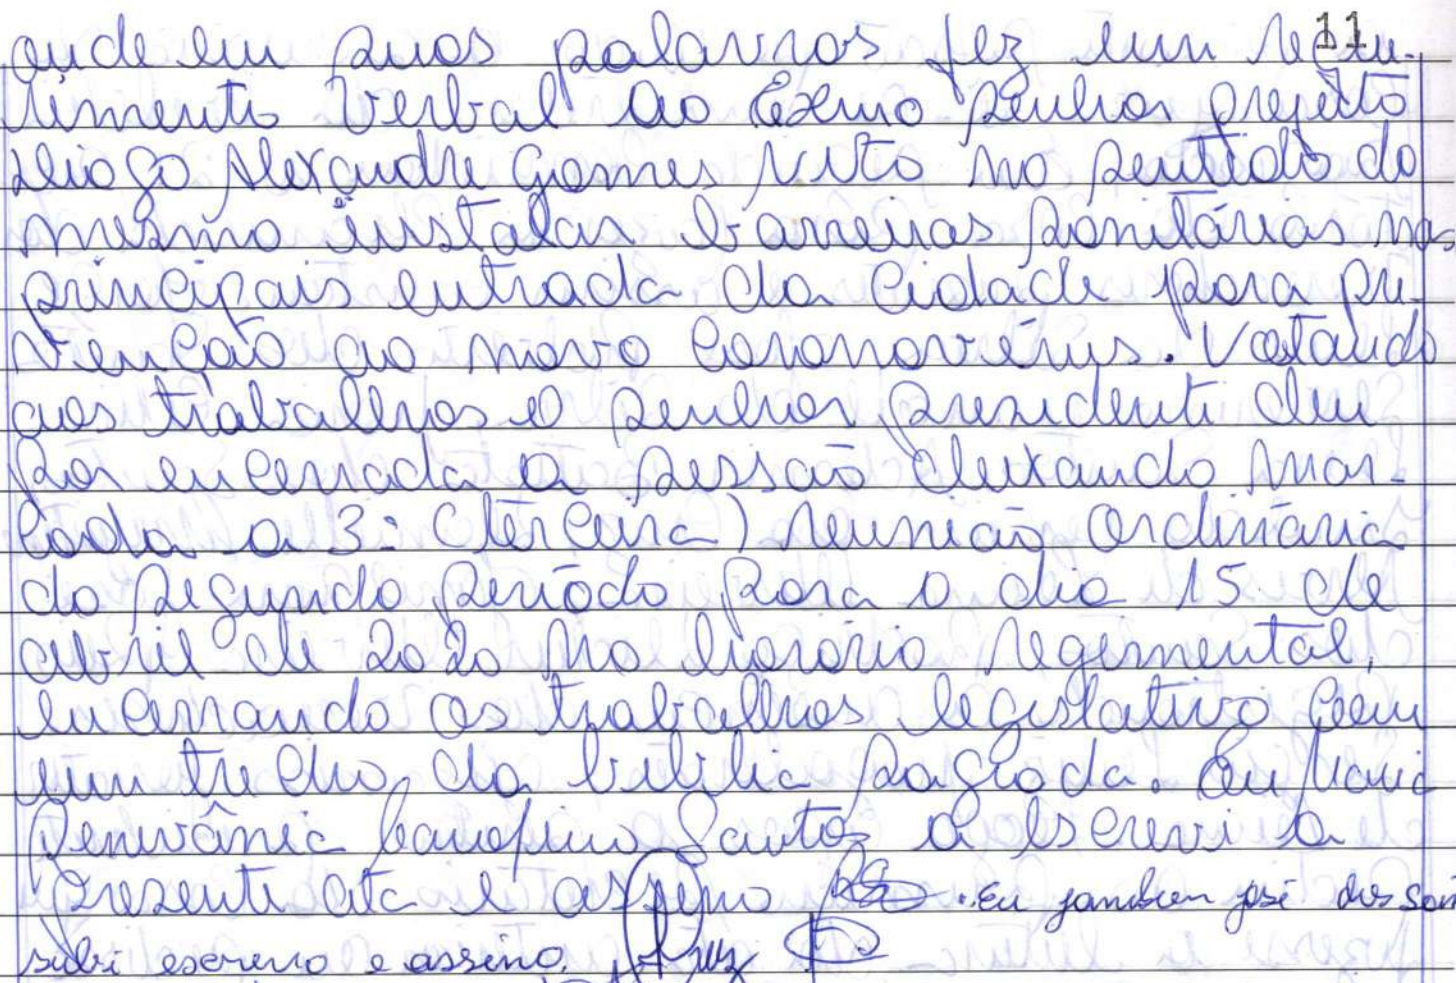 11
onde em suas palavras fez um reque-
rimento Verbal ao Exmo senhor prefeito
Diogo Alexandre Gomes Neto no sentido do
mesmo instalar barreiras sanitárias nas
principais entrada da Cidade para pre-
venção ao novo Coronavírus. Voltando
aos trabalhos o senhor presidente deu
por encerrada a sessão deixando mar-
cada a 3ª (terceira) reunião Ordinária
do segundo período para o dia 15 de
abril de 2020 no horário regimental,
encerrando os trabalhos legislativo com
um trecho da bíblia sagrada. Eu Maria
Santos o escrevi a
presente ata e assino . Eu José dos San
subi escrevo e assino.